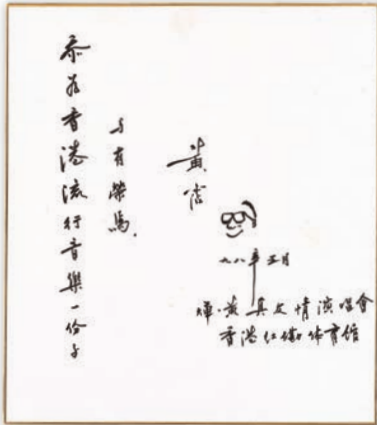 忝為香港流行音樂一份子
与有榮焉.
黃霑
九八年五月
煇·黃真友情演唱會
香港紅磡体育館